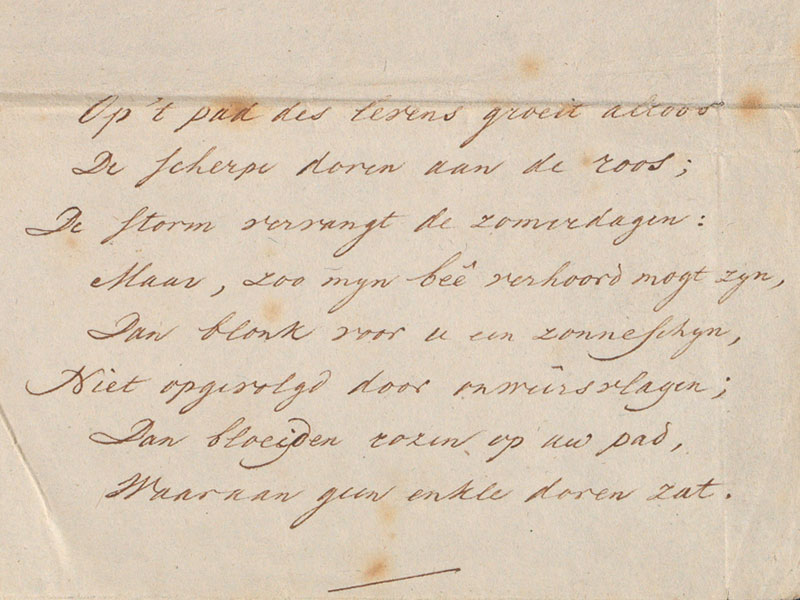 Op't pad des levens groeit altoos
De scherpe doren aan de roos;
De storm vervangt de zomerdagen:
Maar, zoo myn beê verhoord mogt zyn,
Dan blonk voor u een zonneschyn,
Niet opgevolgd door onweêrsvlagen;
Dan bloeijden rozen op uw pad,
Waaraan geen enkle doren zat.